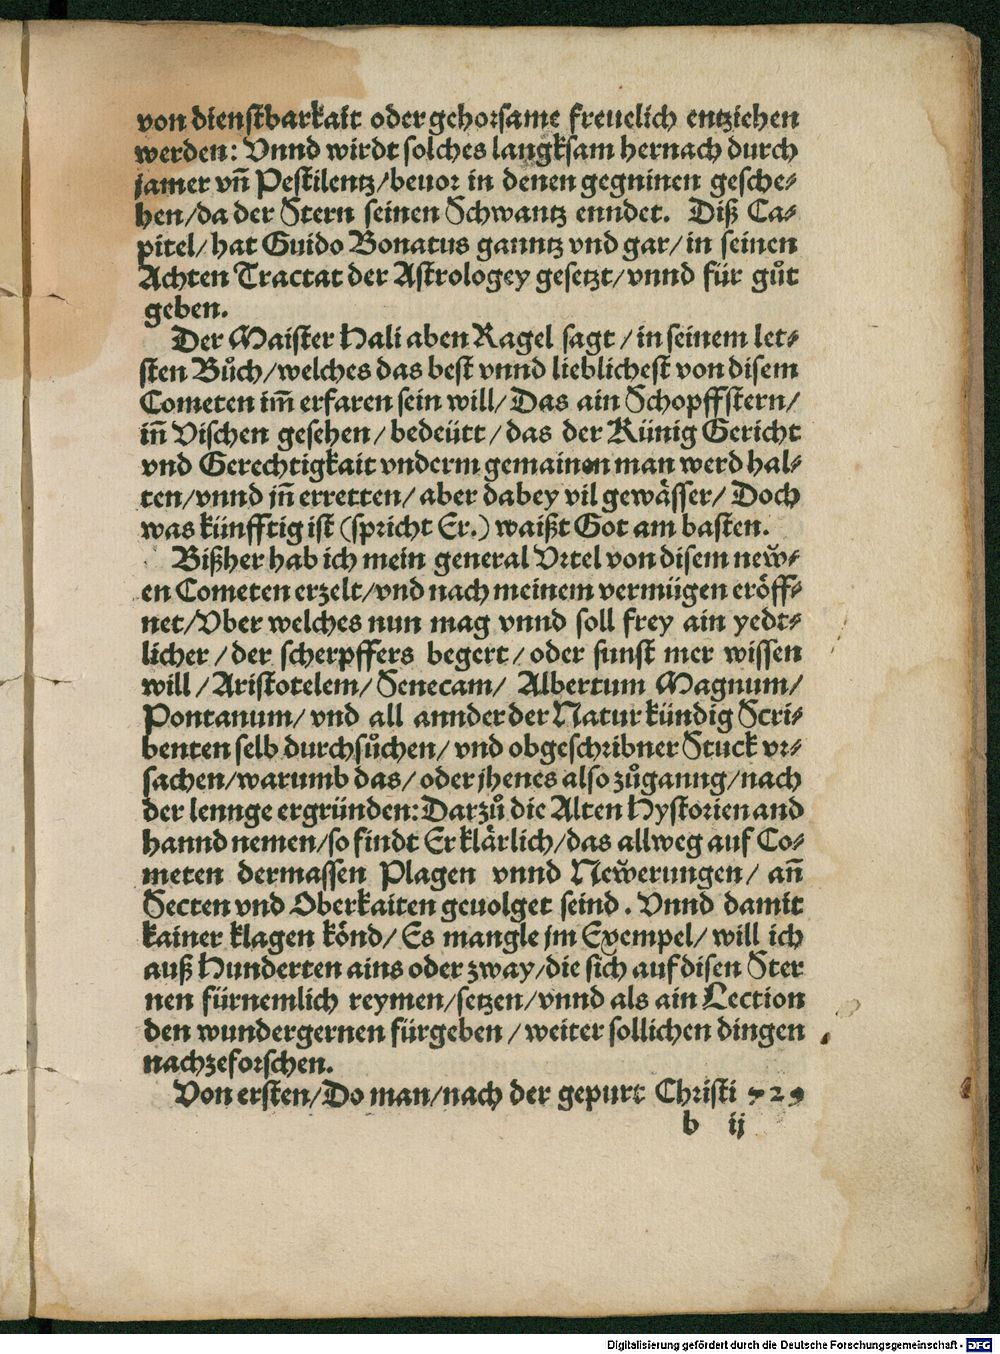 von dienstbarkait oder gehorsame freuelich entziehen
werden: Vnnd wirdt solches langksam hernach durch
jamer vñ Pestilentz/beuor in denen gegninen gesche⸗
hen/da der Stern seinen Schwantz enndet. Diß Ca⸗
pitel/hat Guido Bonatus ganntz vnd gar/in seinen
Achten Tractat der Astrologey gesetzt/vnnd für gůt
geben.
Der Maister Hali aben Ragel sagt/in seinem let⸗
sten Bůch/welches das best vnnd lieblichest von disem
Cometen im̃ erfaren sein will/Das ain Schopffstern/
iñ Vischen gesehen/bedeütt/das der Künig Gericht
vnd Gerechtigkait vnderm gemainen man werd hal⸗
ten/vnnd jñ erretten/aber dabey vil gewässer/Doch
was künfftig ist (spricht Er.) waißt Got am basten.
Bißher hab ich mein general Vrtel von disem new̌⸗
en Cometen erzelt/vnd nach meinem vermügen eröff⸗
net/Vber welches nun mag vnnd soll frey ain yedt⸗
licher/der scherpffers begert/oder sunst mer wissen
will/Aristotelem/Senecam/Albertum Magnum/
Pontanum/vnd all annder der Natur kündig Scri⸗
benten selb durchsůchen/vnd obgeschribner Stuck vr⸗
sachen/warumb das/oder jhenes also zůganng/nach
der lennge ergründen: Darzů die Alten Hystorien and
hannd nemen/so findt Er klärlich/das allweg auf Co⸗
meten dermassen Plagen vnnd New̌erungen/añ
Secten vnd Oberkaiten geuolget seind. Vnnd damit
kainer klagen könd/Es mangle jm Exempel/will ich
auß Hunderten ains oder zway/die sich auf disen Ster
nen fürnemlich reymen/setzen/vnnd als ain Lection
den wundergernen fürgeben/weiter sollichen dingen
nachzeforschen.
Von ersten/Do man/nach der gepurt Christi 729
b ij
Digitalisierung gefördert durch die Deutsche Forschungsgemeinschaft - DFG